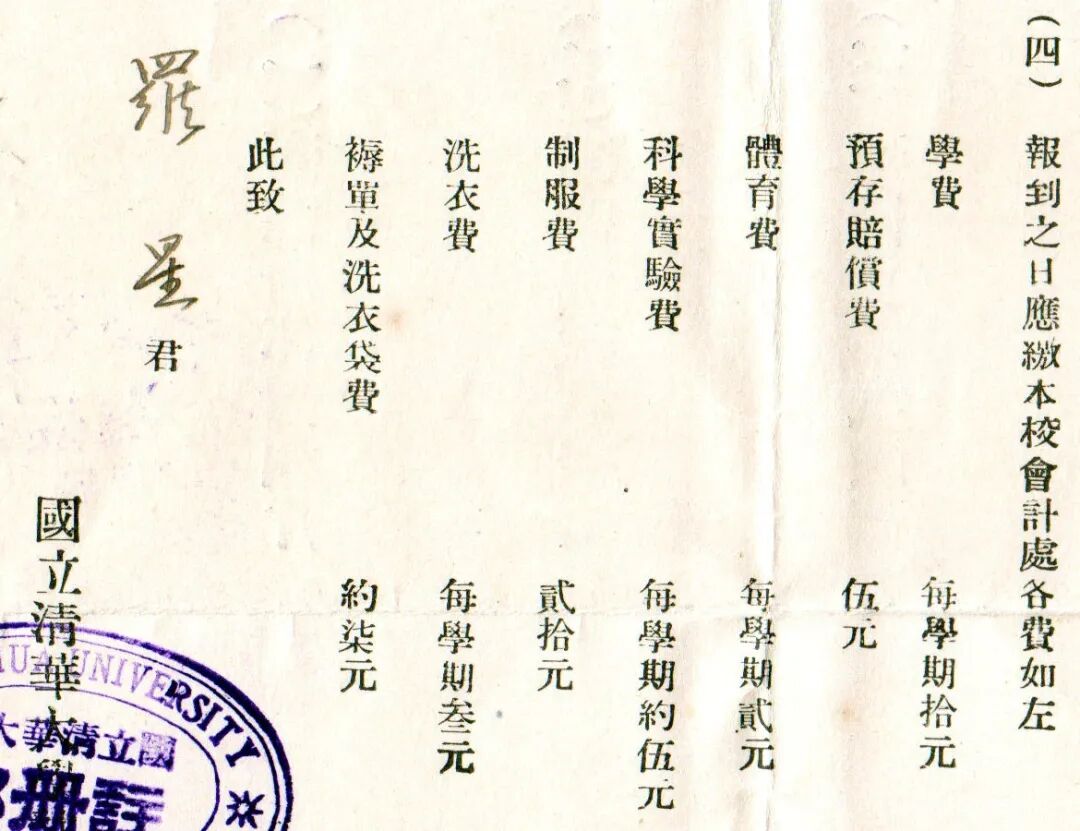 （四） 報到之日應繳本校會計處各費如左
學費 每學期拾元
預存賠償費 伍元
體育費 每學期貳元
科學實驗費 每學期約伍元
制服費 貳拾元
洗衣費 每學期叁元
褥單及洗衣袋費 約柒元
此致
羅星君
國立清華大學
UA UNIVERSITY
國立清華大
註册部